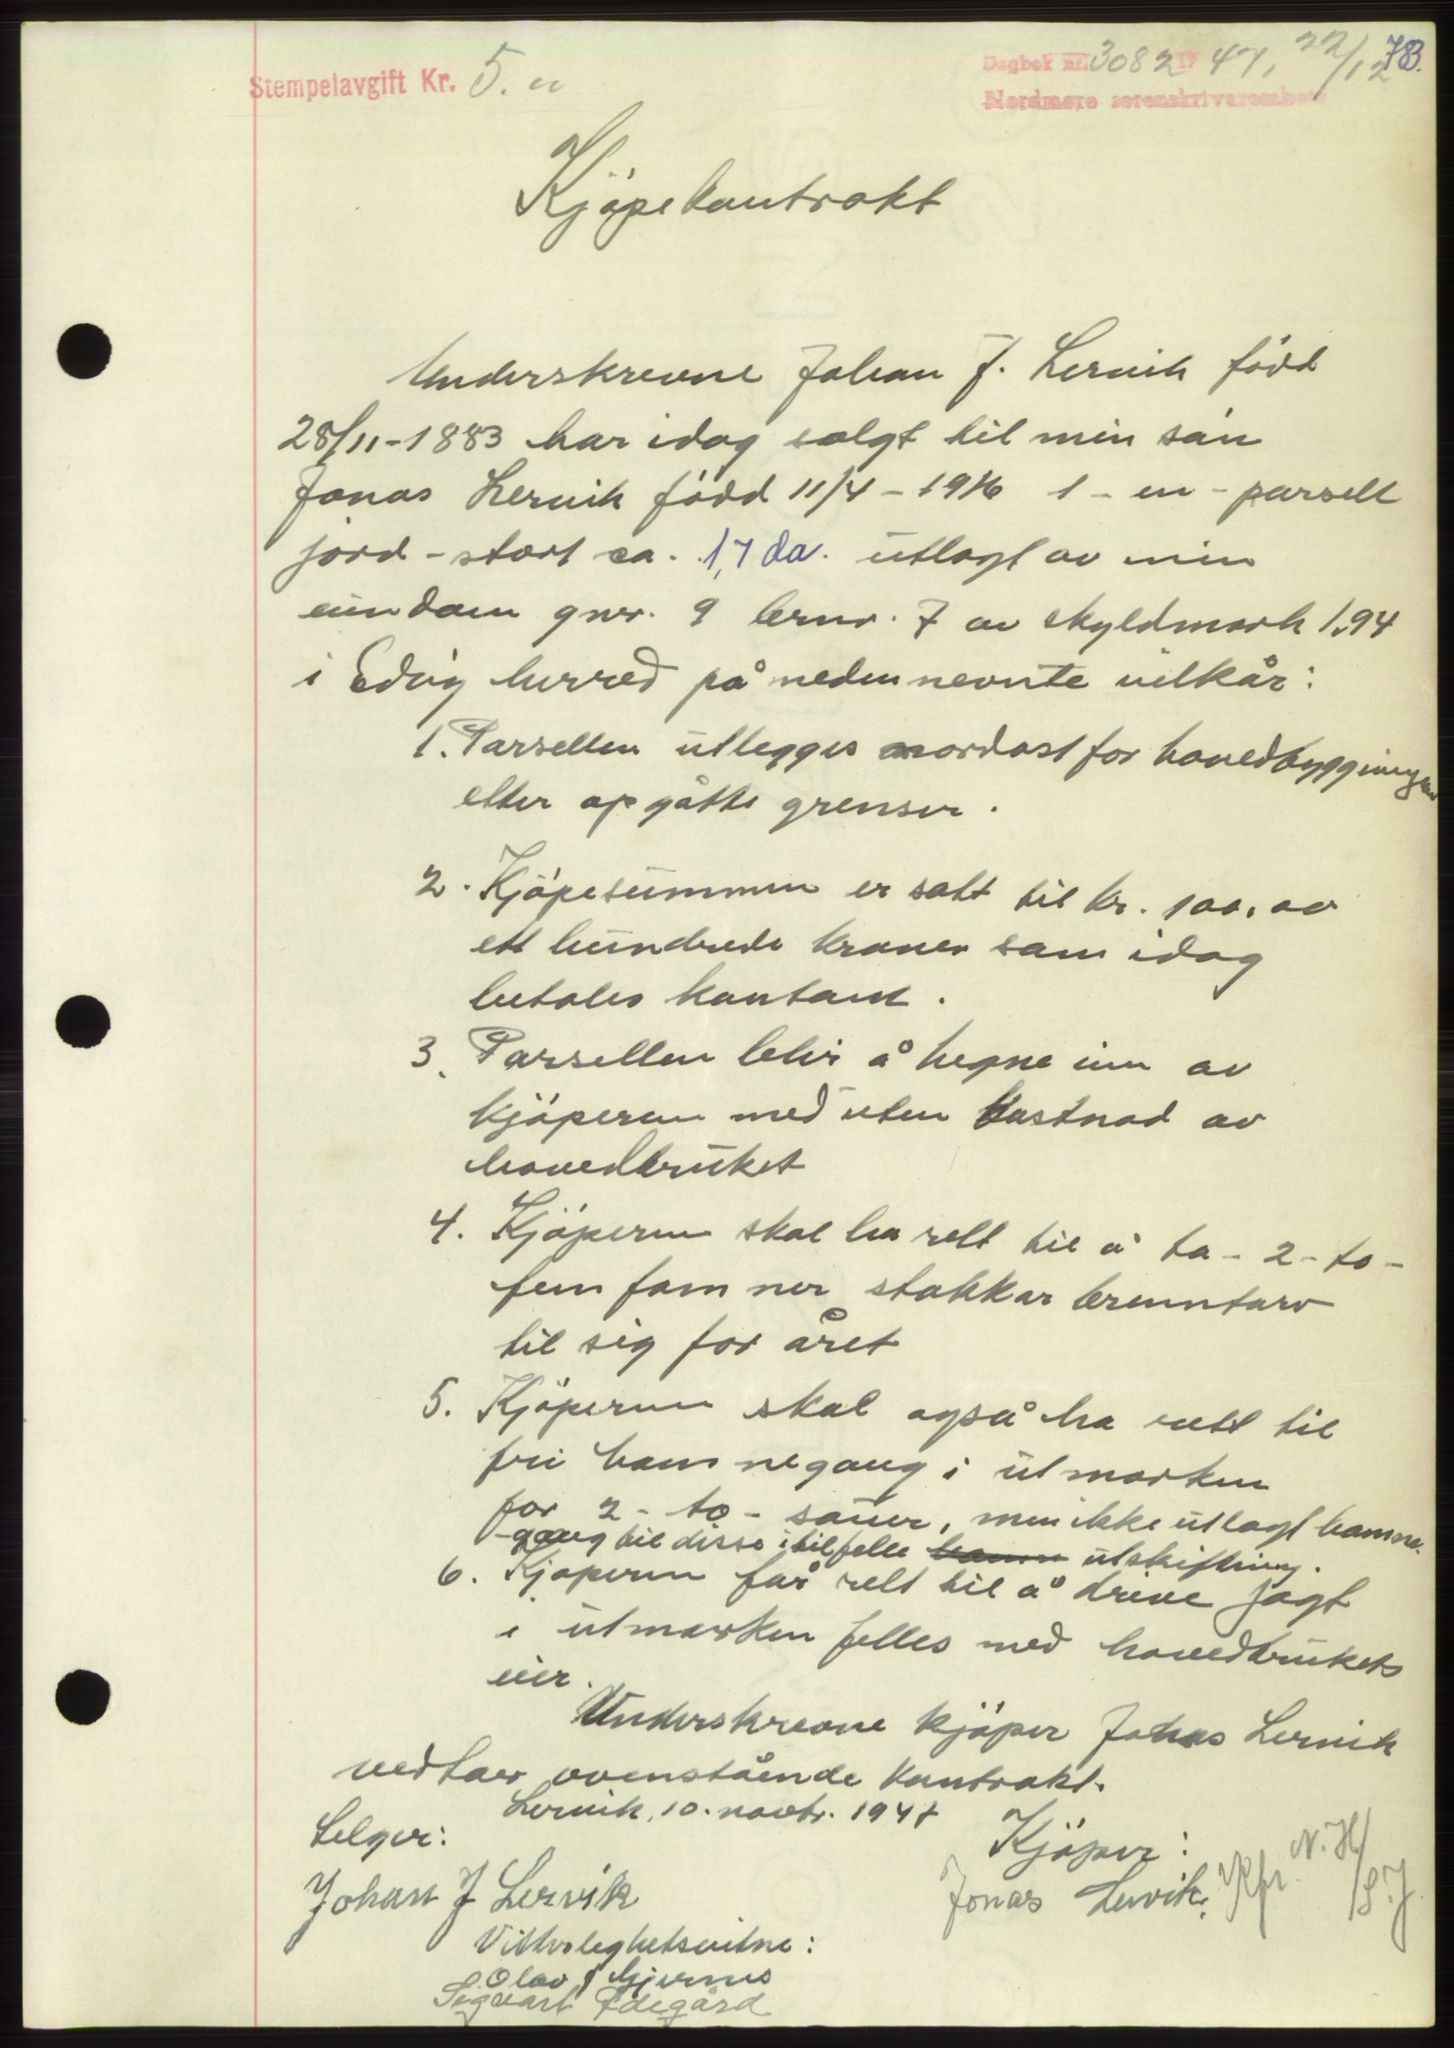 Stempelavgift Kr. 5.
Dagbok nr. 3082 47, 22/12
78.
Nordmøre sorenskrivarembete
Kjøpekontrakt
Underskrevne Johan J. Lervik född
28/11-1883 har idag solgt til min sön
Jonas Lervik född 11/4 - 1916 1 - en - parsell
jord - stort ca. 1,7 da. utlagt av min
eiendom gnr. 9 brnr. 7 av skyldmark 1.94
i Edöy herred på nedennevnte vilkår:
1. Parsellen utlegges nordost for hovedbyggningen
etter opgåtte grenser.
2. Kjöpesummen er satt til kr. 100,00
ett hundrede kroner som idag
betales kontant.
3. Parsellen blir å hegne inn av
kjöperen med uten kostnad av
hovedbruket
4. Kjöperen skal ha rett til å ta - 2 - to -
fem famner stakkar brenntorv
til sig for året
5. Kjöperen skal også ha rett til
fri hamnegang i utmarken
for 2 - to - sauer, men ikke utlagt hamne-
gang til disse i tilfelle utskiftning.
6. Kjöperen får rett til å drive jagt
i utmarken felles med hovedbrukets
eier.
Underskrevne kjöper Jonas Lervik
vedtar ovenstående kontrakt.
Lervik, 10. novbr. 1947
Selger:
Kjöper:
Johan J Lervik
Jonas Lervik.
Kfr. N.H/
/S.J.
Vitterleghetsvitne:
Olav J
Sigvart Ødegård